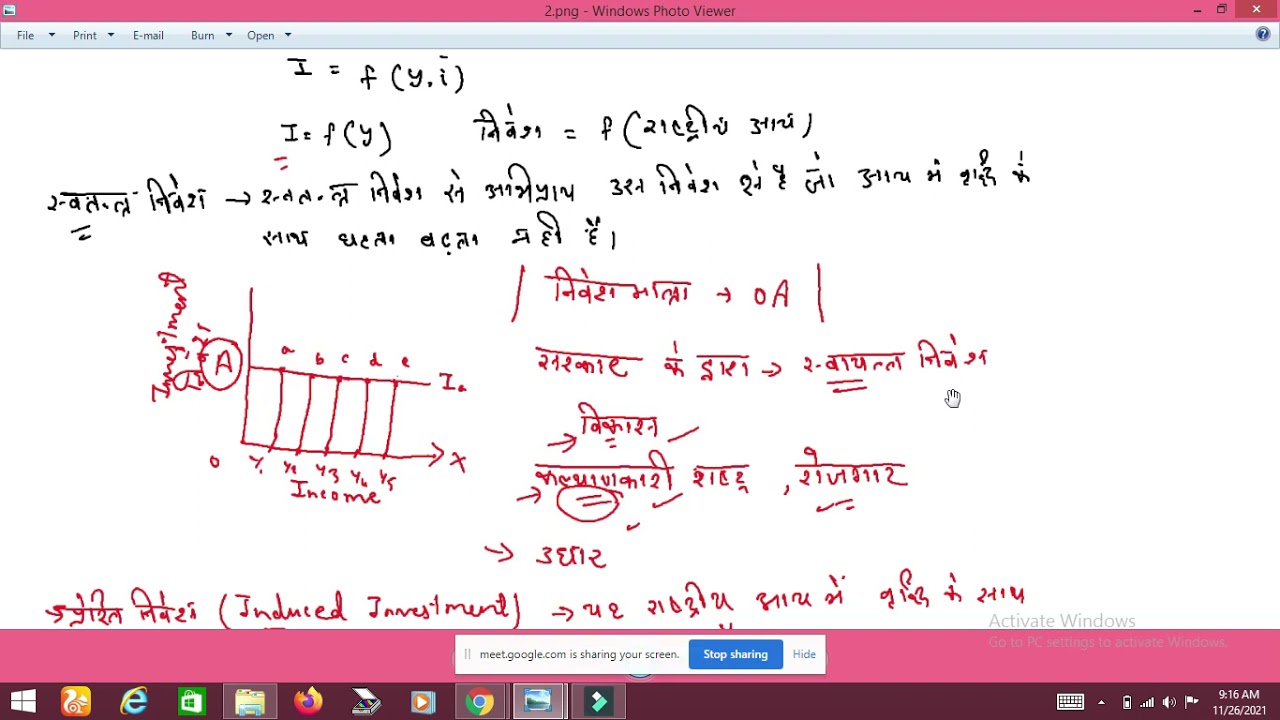 2.png - Windows Photo Viewer
File Print E-mail Burn Open
I = f (y, i)
I = f (y) निवेश = f (राष्ट्रीय आय)
स्वतन्त्र निवेश → स्वतन्त्र निवेश से अभिप्राय उस निवेश से है जो आय में वृद्धि के
साथ घटता बढ़ता नही है।
| निवेश मात्रा → OA |
Investment
A
a b c d e
Ia
सरकार के द्वारा → स्वायत्त निवेश
→ विकास
O Y1 Y2 Y3 Y4 Y5 X
Income
→ कल्याणकारी राष्ट्र , रोजगार
→ उधार
→ प्रेरित निवेश (Induced Investment) → यह राष्ट्रीय आय में वृद्धि के साथ
Activate Windows
Go to PC settings to activate Windows.
meet.google.com is sharing your screen. Stop sharing Hide
9:16 AM
11/26/2021